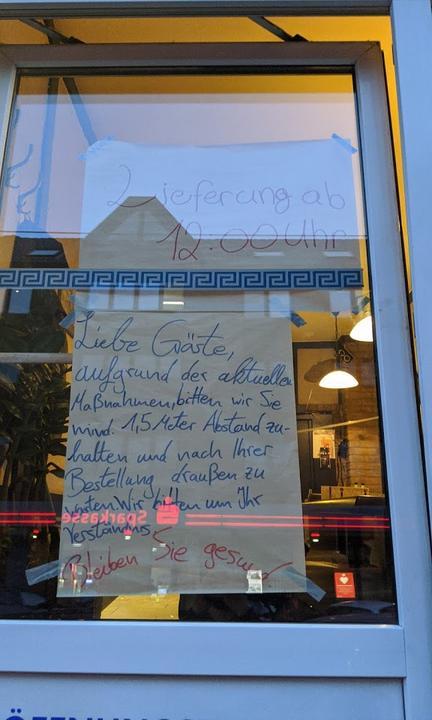 Lieferung ab
12:00 Uhr
Liebe Gäste,
aufgrund der aktuellen
Maßnahmen, bitten wir Sie
mind. 1,5 Meter Abstand zu-
halten und nach Ihrer
Bestellung draußen zu
warten. Wir bitten um Ihr
Verständnis.
Bleiben Sie gesund
Sparkasse